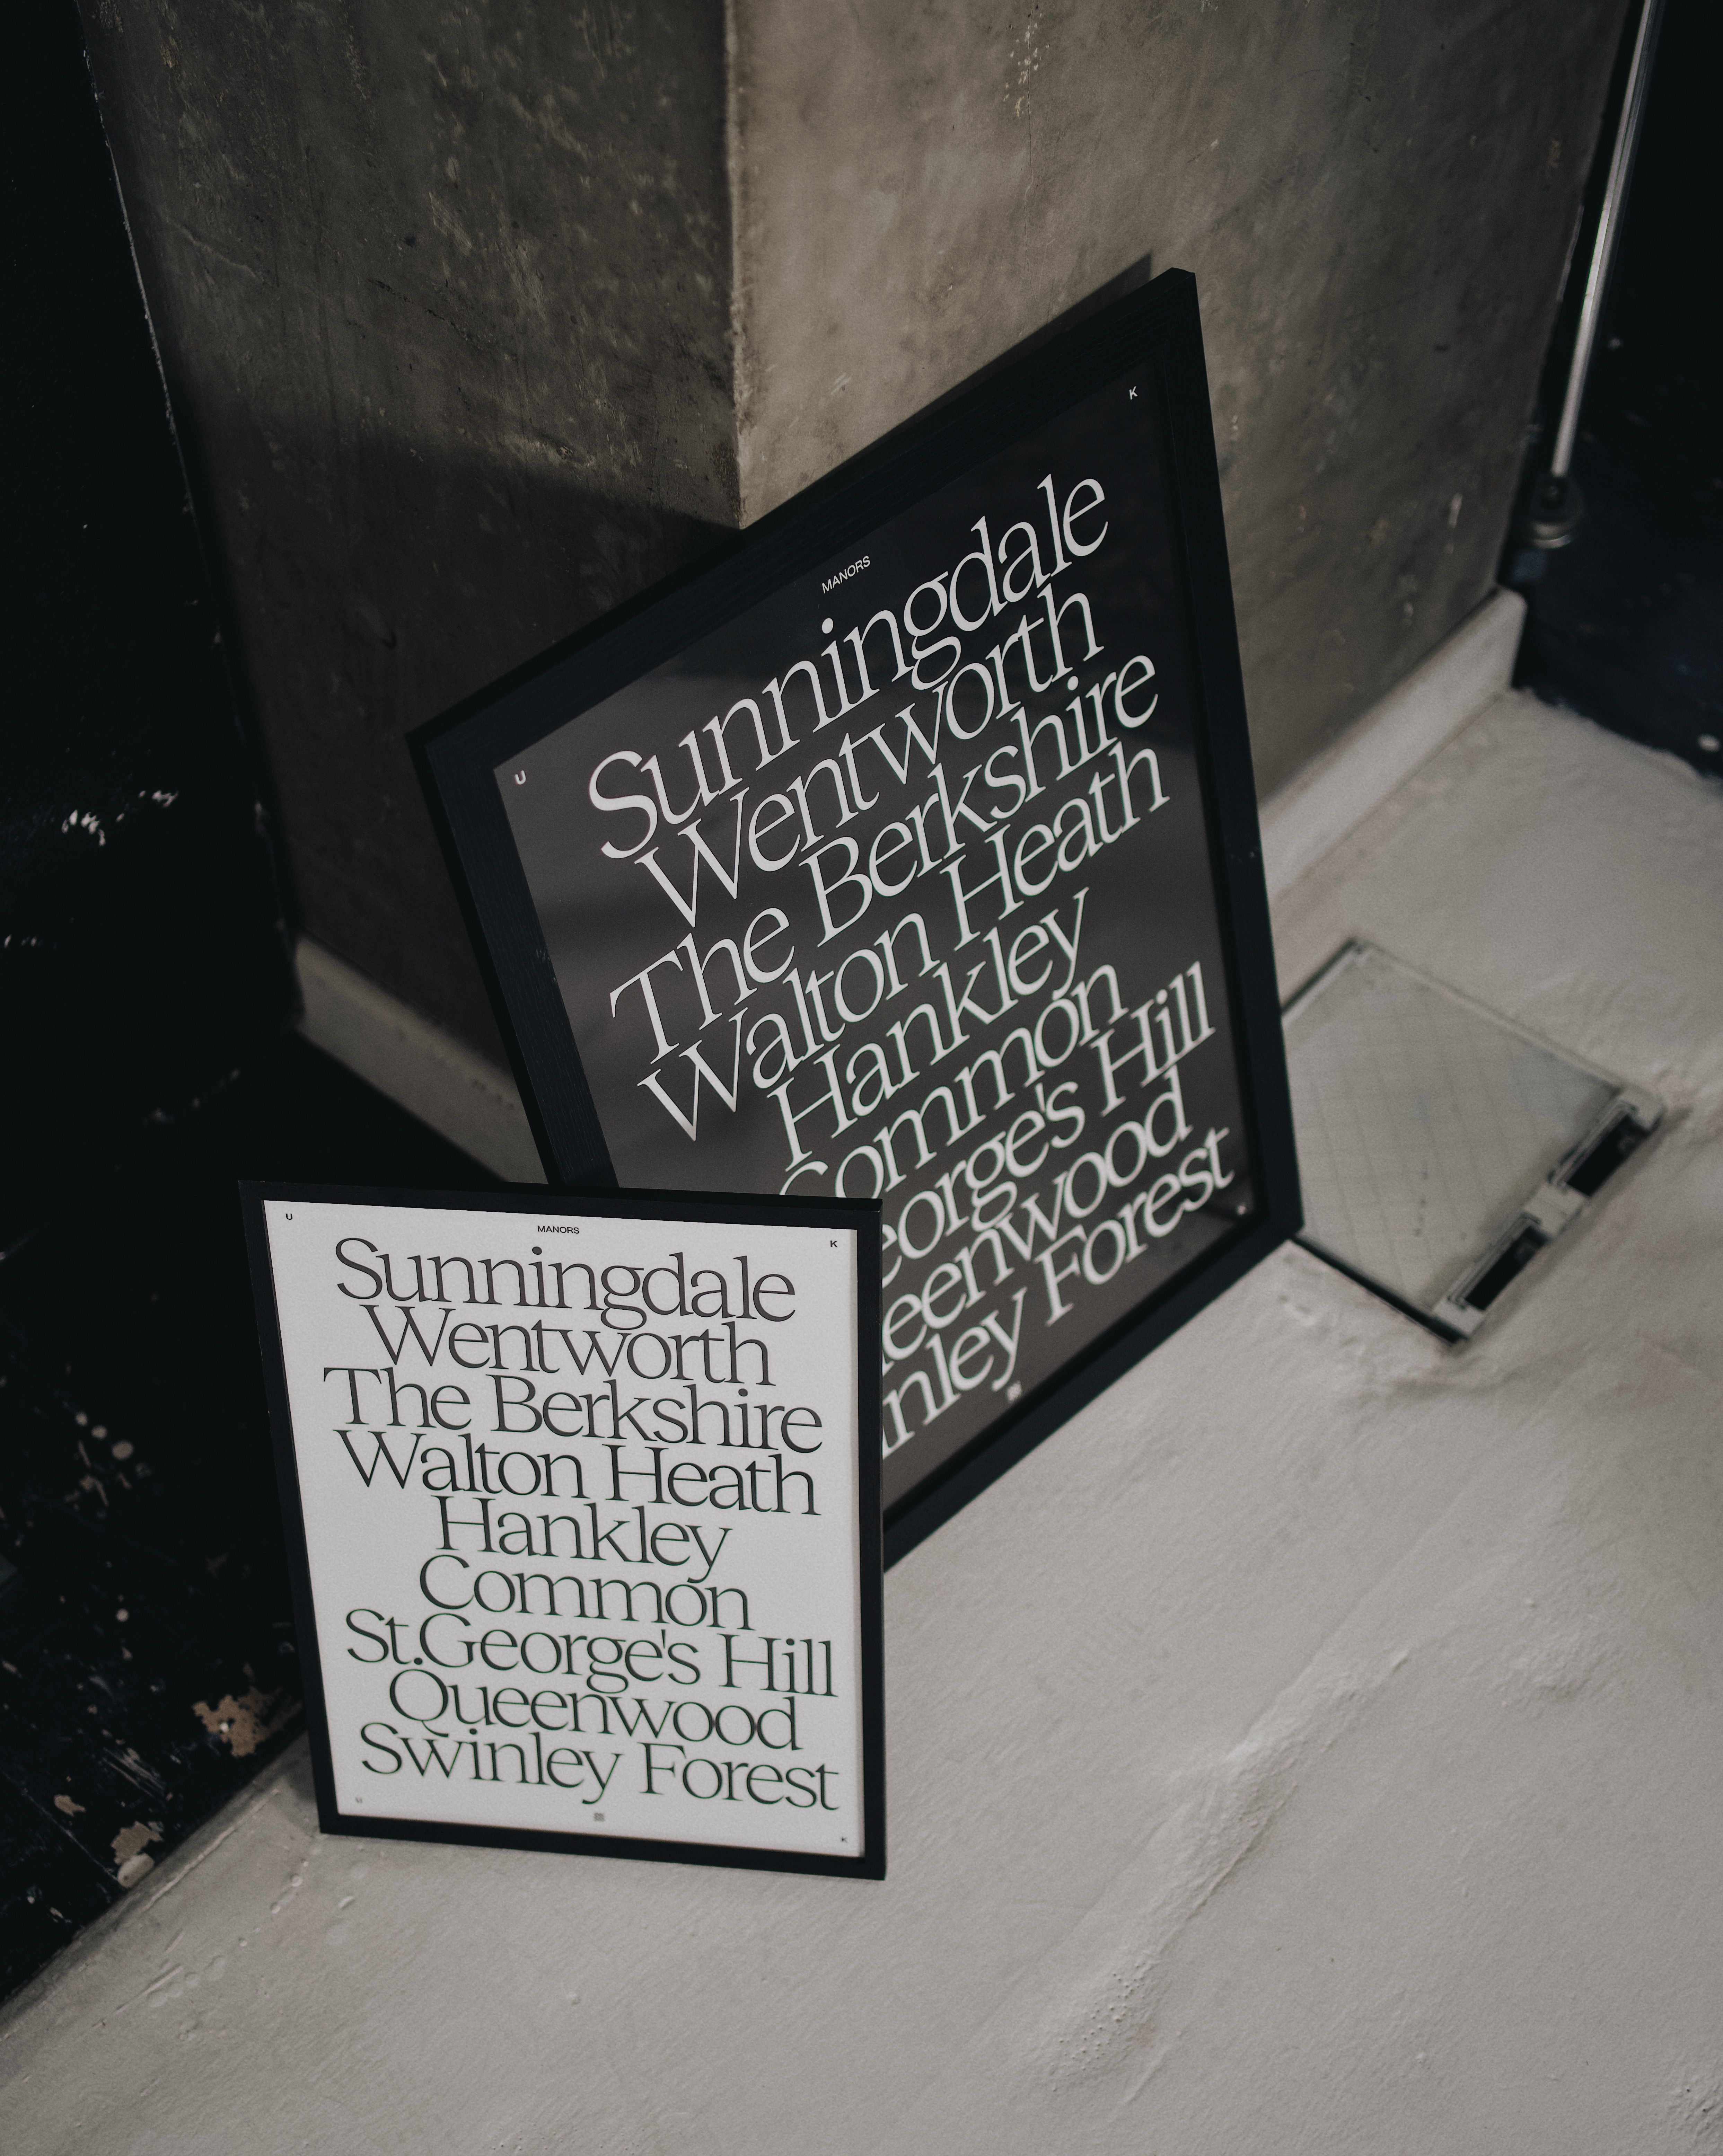 K
MANORS
U
Sunningdale
Wentworth
The Berkshire
Walton Heath
Hankley
Common
eorge's Hill
eenwood
nley Forest
U
MANORS
K
Sunningdale
Wentworth
The Berkshire
Walton Heath
Hankley
Common
St.George's Hill
Queenwood
Swinley Forest
U
K